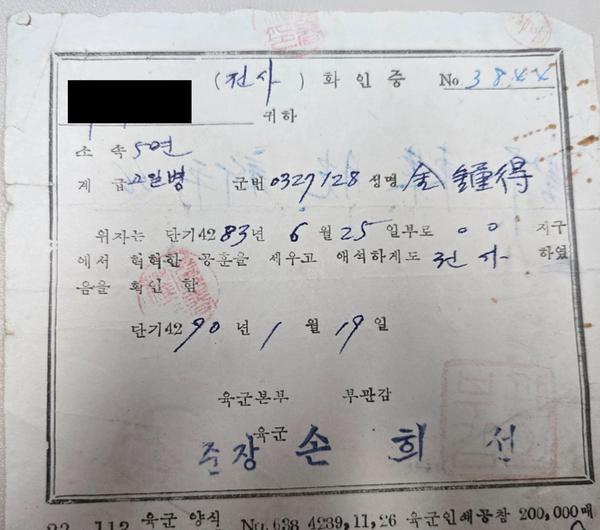 (전사) 화인증 No 3844
귀하
소속 5연
계급 고일병 군번 0329128 성명 金鍾得
위자는 단기4283년 6월 25일부로 00 지구
에서 혁혁한 공훈을 세우고 애석하게도 전사 하였
음을 확인함
단기4290년 1월 19일
육군본부 부관감
육군
준장 손희선
23 113 육군 양식 No.638 4239,11,26 육군인쇄공창 200,000매